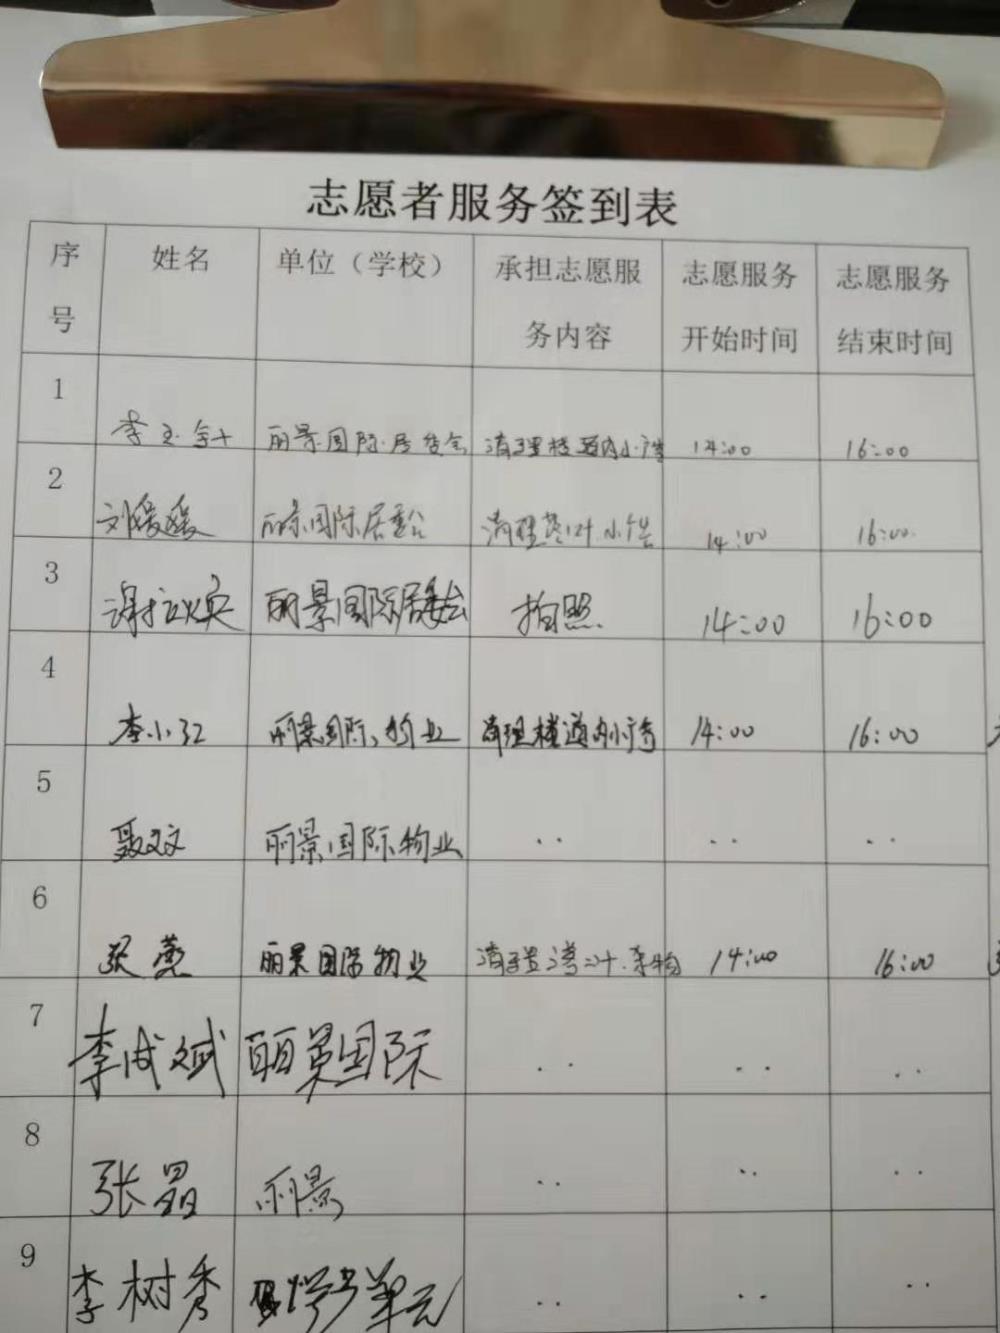 志愿者服务签到表
序号 姓名 单位（学校） 承担志愿服务内容 志愿服务开始时间 志愿服务结束时间
1 李玉 丽景国际居委会 清理楼道内小广告 14:00 16:00
2 刘媛媛 丽景国际居委会 清理 小广告 14:00 16:00
3 谢 焕 丽景国际居委会 拍照. 14:00 16:00
4 李小红 丽景国际物业 清理楼道内小广告 14:00 16:00
5 聂文文 丽景国际物业 .. .. ..
6 张燕 丽景国际物业 清理 杂物 14:00 16:00
7 李成斌 丽景国际 .. .. ..
8 张晶 丽景 .. .. ..
9 李树秀 号单元 .. .. ..